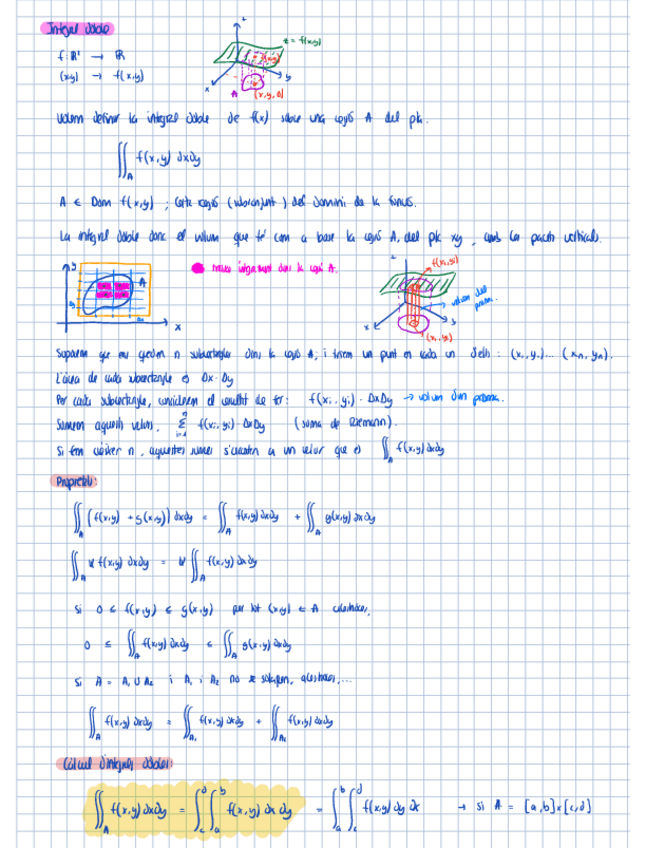 Integral doble
f: ℝ² → ℝ
(x,y) → f(x,y)
z = f(x,y)
x
y
z
A
(x,y,0)
Volem definir la integral doble de f(x) sobre una regió A del pla.
∬_A f(x,y) dxdy
A ∈ Dom f(x,y) ; certa regió (subconjunt) del domini de la funció.
La integral doble dona el volum que té com a base la regió A, del pla xy, amb les parets verticals.
y
A
x
dins la regió A.
f(xᵢ,yᵢ)
volum del prisma.
x
y
z
(xᵢ,yᵢ)
Suposem que n subrectangles dins la regió A; i triem un punt en cada un d'ells: (x₁,y₁)... (xₙ,yₙ).
L'àrea de cada subrectangle és Dx·Dy
Per cada subrectangle, considerem el resultat de fer: f(xᵢ,yᵢ)·DxDy → volum d'un prisma.
Sumem aquests valors, Σ f(xᵢ,yᵢ) DxDy (suma de Riemann).
Si fem créixer n, aquestes sumes s'acosten a un valor que és ∬_A f(x,y) dxdy
Propietats:
∬_A (f(x,y) + g(x,y)) dxdy = ∬_A f(x,y) dxdy + ∬_A g(x,y) dxdy
∬_A k f(x,y) dxdy = k ∬_A f(x,y) dxdy
Si 0 ≤ f(x,y) ≤ g(x,y) per tot (x,y) ∈ A aleshores,
0 ≤ ∬_A f(x,y) dxdy ≤ ∬_A g(x,y) dxdy
Si A = A₁ ∪ A₂ i A₁ i A₂ no es solapen, aleshores,...
∬_A f(x,y) dxdy = ∬_A₁ f(x,y) dxdy + ∬_A₂ f(x,y) dxdy
Càlcul d'integrals dobles:
∬_A f(x,y) dxdy = ∫_c^d ∫_a^b f(x,y) dx dy = ∫_a^b ∫_c^d f(x,y) dy dx → si A = [a,b]×[c,d]